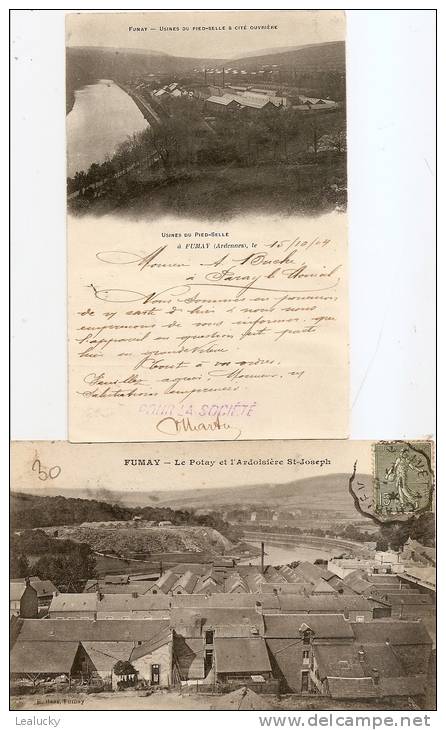 FUMAY — USINES DU PIED-SELLE & CITÉ OUVRIÈRE
USINES DU PIED-SELLE
à FUMAY (Ardennes), le 15/10/04
Monsieur A.
à Paray le Monial
Nous sommes en possession
de votre carte de hier & nous nous
empressons de vous informer que
l'appareil en question est parti
hier en grande vitesse.
Tout à vos ordres,
Veuillez agréer, Monsieur, n/
Salutations empressées.
POUR LA SOCIÉTÉ
30
FUMAY. — Le Potay et l'Ardoisière St-Joseph
Fumay
Lealucky